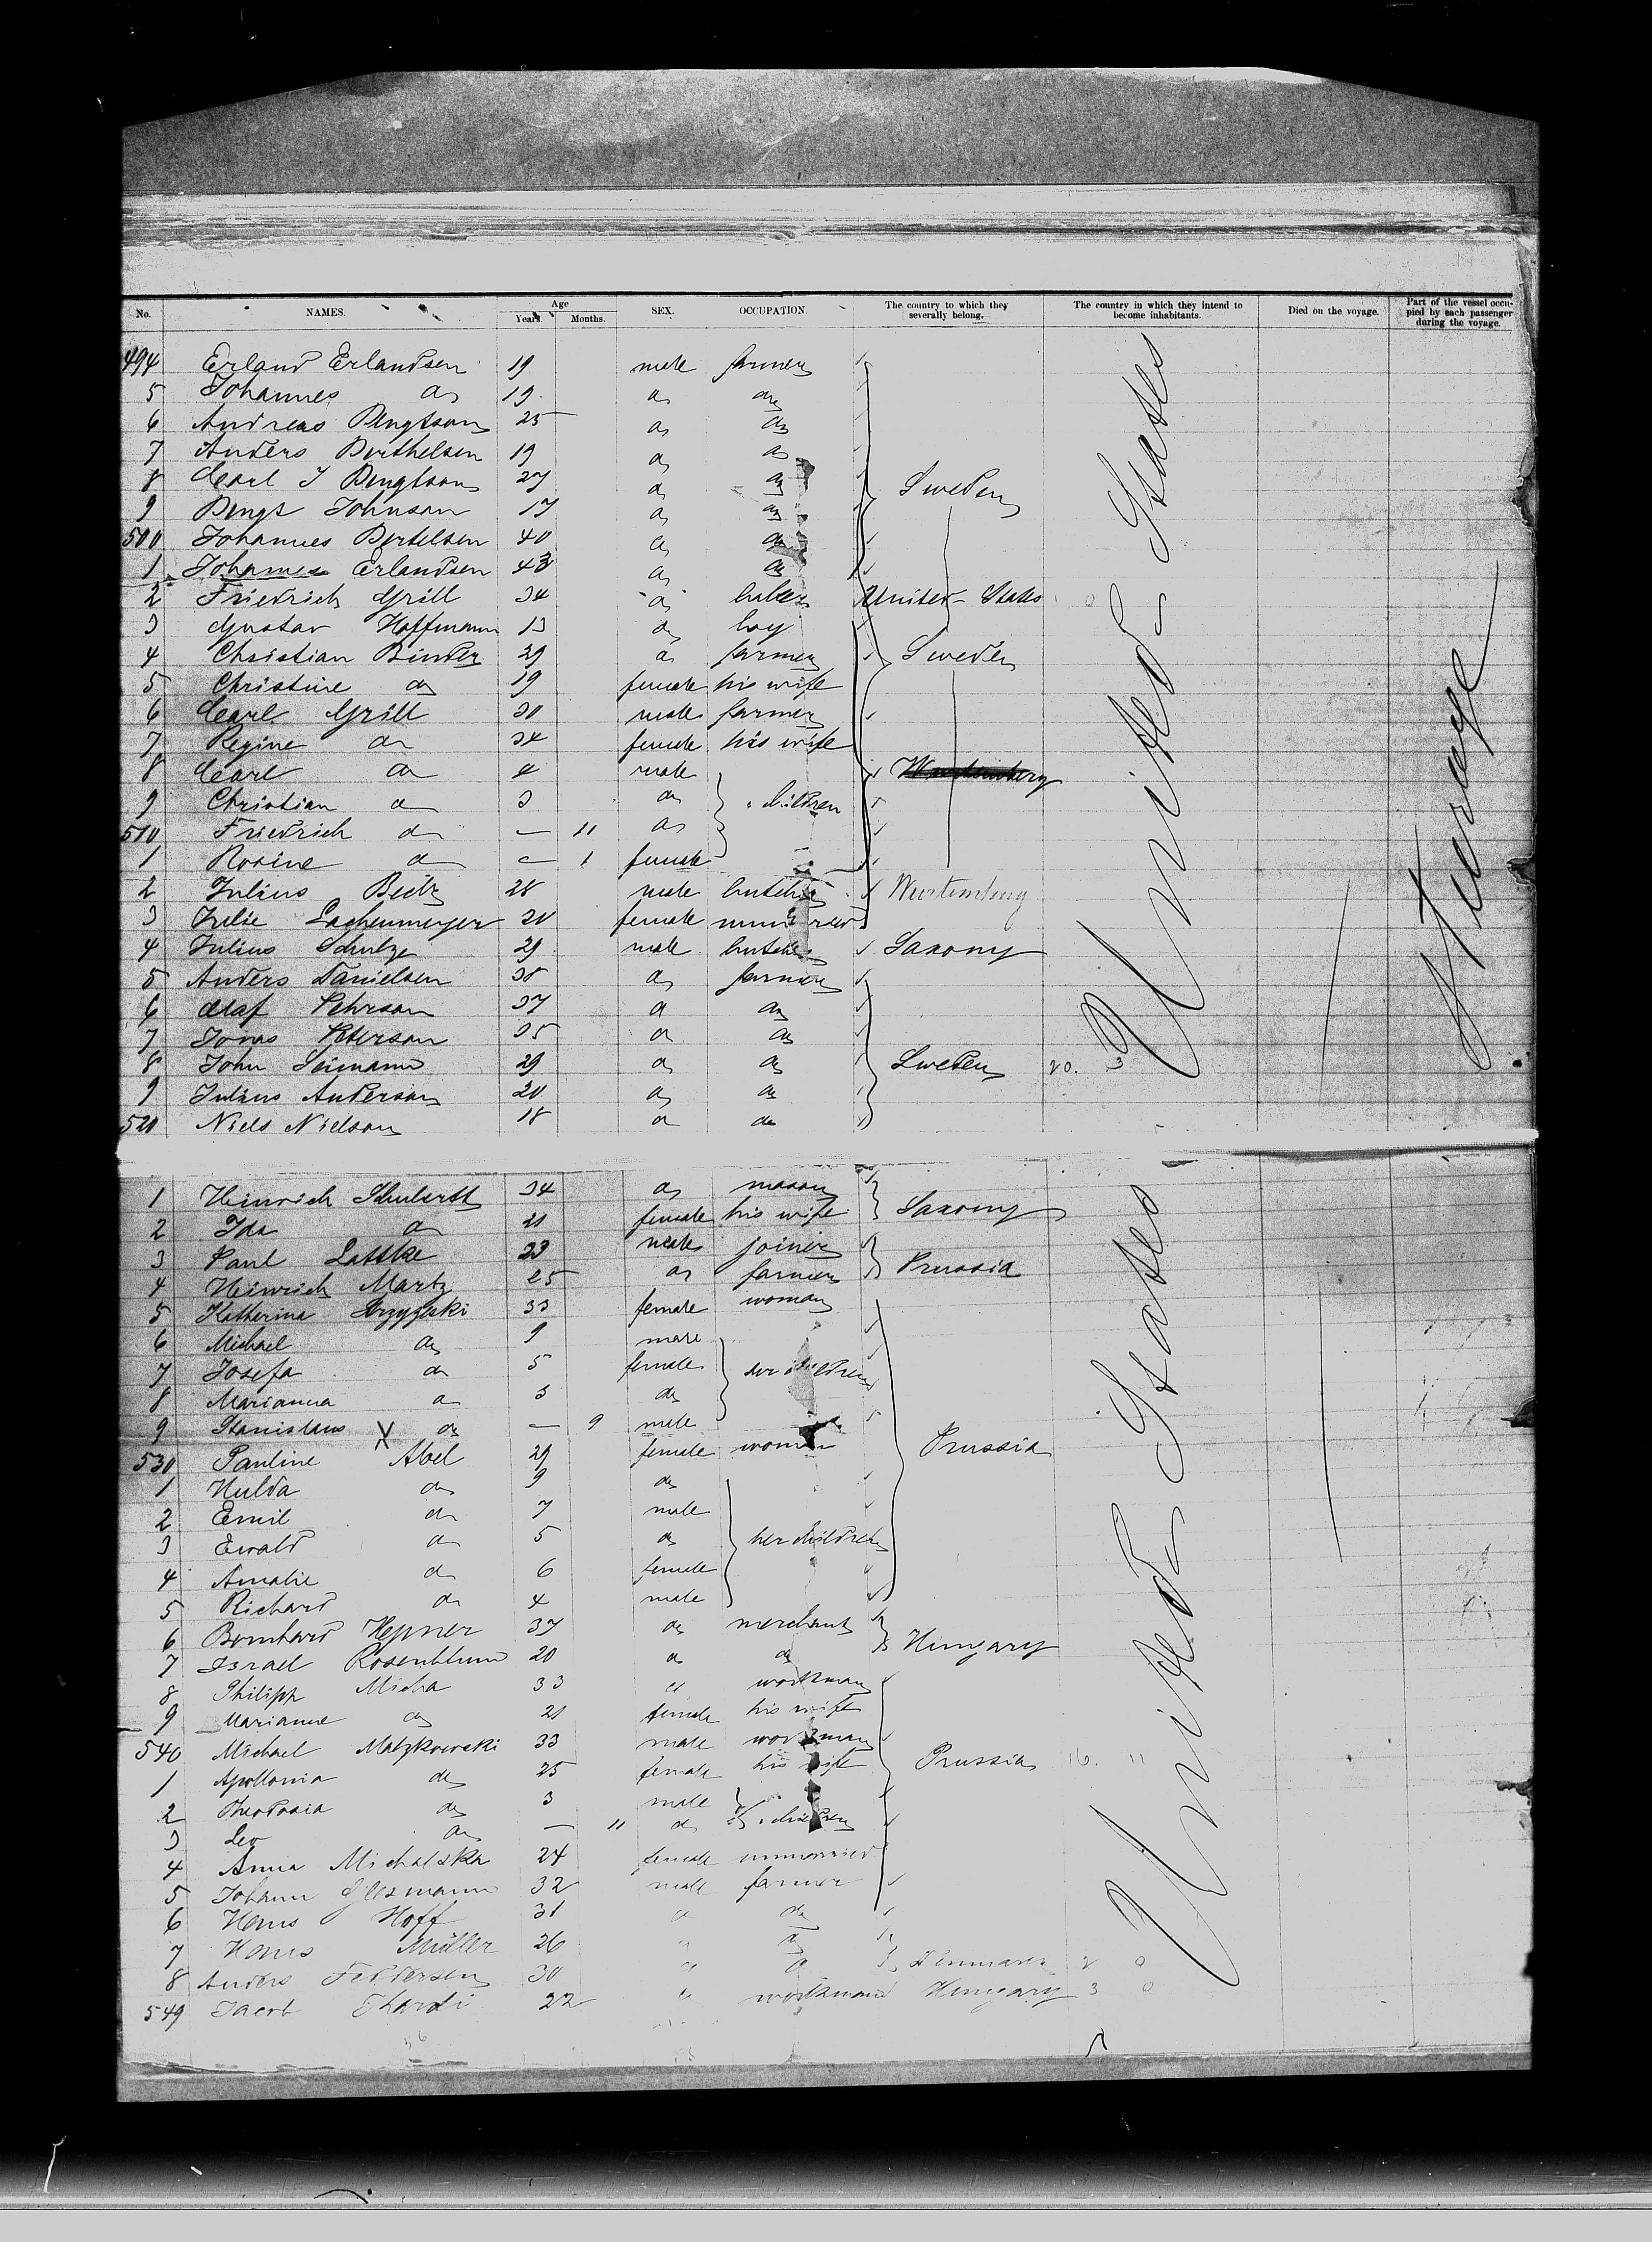 No. NAMES. Age Years. Months. SEX. OCCUPATION. The country to which they severally belong. The country in which they intend to become inhabitants. Died on the voyage. Part of the vessel occupied by each passenger during the voyage.
494 Erland Erlandsen 19 male farmer
5 Johannes do 19 do do
6 Andreas Bengtson 25 do do
7 Anders Berthelsen 19 do do
8 Carl J Bengtson 27 do do Sweden
9 Bengt Johnson 17 do do
500 Johannes Bertelsen 40 do do
1 Johannes Erlandsen 43 do do
2 Friedrich Grill 34 do United States
3 Gustav Hoffmann 13 do boy
4 Christian Binder 29 do farmer Sweden
5 Christine do 19 female his wife
6 Carl Grill 30 male farmer
7 Regine do 34 female his wife
8 Carl do 4 male Wurtemberg
9 Christian do 3 do children
510 Friedrich do — 11 do
1 Rosine do — 1 female
2 Julius Beitz 28 male butcher Wurtemburg
3 Julie Lachenmeyer 20 female unmarried
4 Julius Schulze 29 male butcher Saxony
5 Anders Danielsen 38 do farmer
6 Olaf Pehrson 37 do do
7 Jonas Peterson 35 do do
8 John 29 do do Sweden 20. 3
9 Julius Anderson 20 do do
520 Niels Nielson 18 do do
United States
Steerage
1 Heinrich Schuberth 34 do mason
2 Ida do 21 female his wife Saxony
3 Paul Lattke 23 male joiner
4 Heinrich Martz 25 do farmer Prussia
5 Katherina 33 female woman
6 Michael do 9 male
7 Josefa do 5 female her children
8 Marianna do 3 do
9 Stanislaus X do — 9 male
530 Pauline Abel 29 female woman Prussia
1 Hulda do 9 do
2 Emil do 7 male
3 Ewald do 5 do her children
4 Amalie do 6 female
5 Richard do 4 male
6 Bernhard Hepner 37 do merchant
7 Israel Rosenblum 20 do do Hungary
8 Philipp Micha 33 " workman
9 Marianne do 21 female his wife
540 Michael Matzkowski 33 male workman
1 Apollonia do 25 female his wife Prussia 16. "
2 do 3 male
3 Leo do — 11 do children
4 Anna Michalska 24 female unmarried
5 Johann 32 male farmer
6 Hans Hoff 31 " do
7 Hans Müller 26 " do
8 Anders Feddersen 30 " do Denmark 2 0
549 Jacob 22 " workman Hungary 3 0
United States